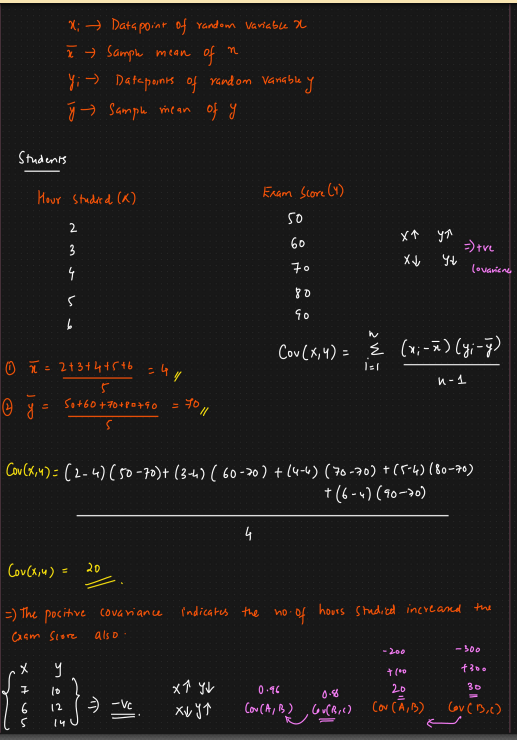 xi → Datapoint of random variable x
x̄ → Sample mean of x
yi → Datapoints of random variable y
ȳ → Sample mean of y
Students
Hour studied (X)    Exam Score (Y)
2    50
3    60
4    70
5    80
6    90
X↑ Y↑
X↓ Y↓
⇒ +ve
covariance
Cov(X,Y) = Σ (i=1 to n) (xi-x̄)(yi-ȳ) / n-1
① x̄ = 2+3+4+5+6 / 5 = 4
② ȳ = 50+60+70+80+90 / 5 = 70
Cov(X,Y) = (2-4)(50-70)+(3-4)(60-70)+(4-4)(70-70)+(5-4)(80-70)
+(6-4)(90-70)
4
Cov(X,Y) = 20
⇒ The positive covariance indicates the no. of hours studied increased the
exam score also.
X Y
7 10
6 12
5 14
⇒ -ve
X↑ Y↓
X↓ Y↑
0.96 0.88
Cov(A,B) Cov(B,C)
-200 -300
+100 +300
20 30
Cov(A,B) Cov(B,C)